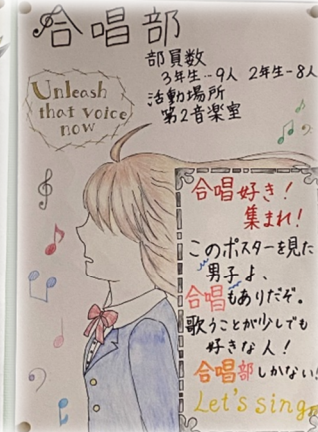 合唱部
部員数
3年生…9人 2年生-8人
活動場所
第2音楽室
Unleash
that voice
now
合唱好き!
集まれ!
このポスターを見た
男子よ、
合唱もありだぞ。
歌うことが少しでも
好きな人!
合唱部しかない!
Let's sing